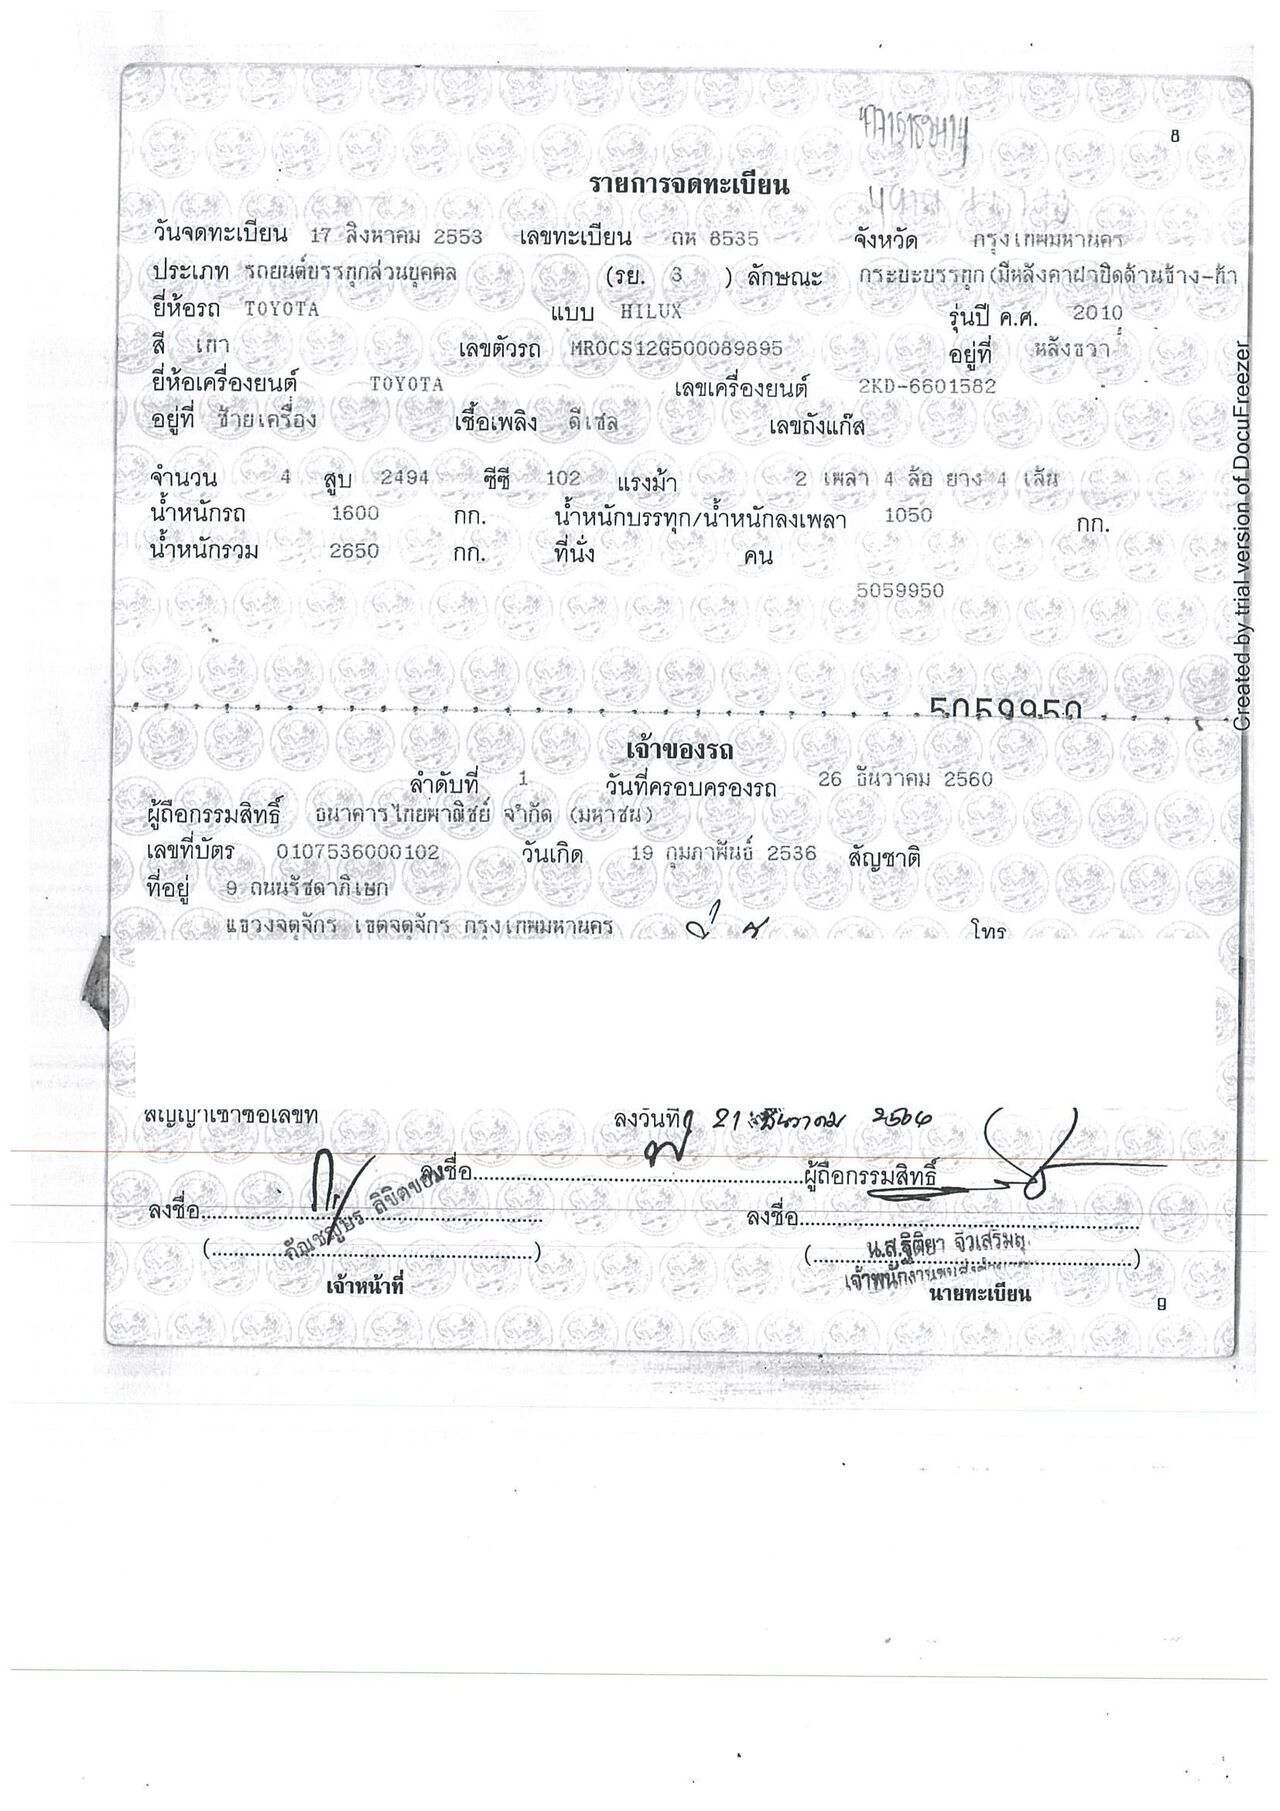 8
รายการจดทะเบียน
วันจดทะเบียน 17 สิงหาคม 2553 เลขทะเบียน ถห 8535 จังหวัด กรุงเทพมหานคร
ประเภท รถยนต์บรรทุกส่วนบุคคล (รย. 3 ) ลักษณะ กระบะบรรทุก(มีหลังคาฝาปิดด้านข้าง-ท้า
ยี่ห้อรถ TOYOTA แบบ HILUX รุ่นปี ค.ศ. 2010
สี เทา เลขตัวรถ MR0CS12G500089895 อยู่ที่ หลังขวา
ยี่ห้อเครื่องยนต์ TOYOTA เลขเครื่องยนต์ 2KD-6601582
อยู่ที่ ซ้ายเครื่อง เชื้อเพลิง ดีเซล เลขถังแก๊ส
จำนวน 4 สูบ 2494 ซีซี 102 แรงม้า 2 เพลา 4 ล้อ ยาง 4 เส้น
น้ำหนักรถ 1600 กก. น้ำหนักบรรทุก/น้ำหนักลงเพลา 1050 กก.
น้ำหนักรวม 2650 กก. ที่นั่ง คน
5059950
5059950
เจ้าของรถ
ลำดับที่ 1 วันที่ครอบครองรถ 26 ธันวาคม 2560
ผู้ถือกรรมสิทธิ์ ธนาคารไทยพาณิชย์ จำกัด (มหาชน)
เลขที่บัตร 0107536000102 วันเกิด 19 กุมภาพันธ์ 2536 สัญชาติ
ที่อยู่ 9 ถนนรัชดาภิเษก
แขวงจตุจักร เขตจตุจักร กรุงเทพมหานคร โทร
สัญญาเช่าซื้อเลขที่ ลงวันที่ 21 ธันวาคม
ลงชื่อ ผู้ถือกรรมสิทธิ์
ลงชื่อ ลงชื่อ
น.ส.ฐิติยา
เจ้าหน้าที่ นายทะเบียน
9
Created by trial version of DocuFreezer